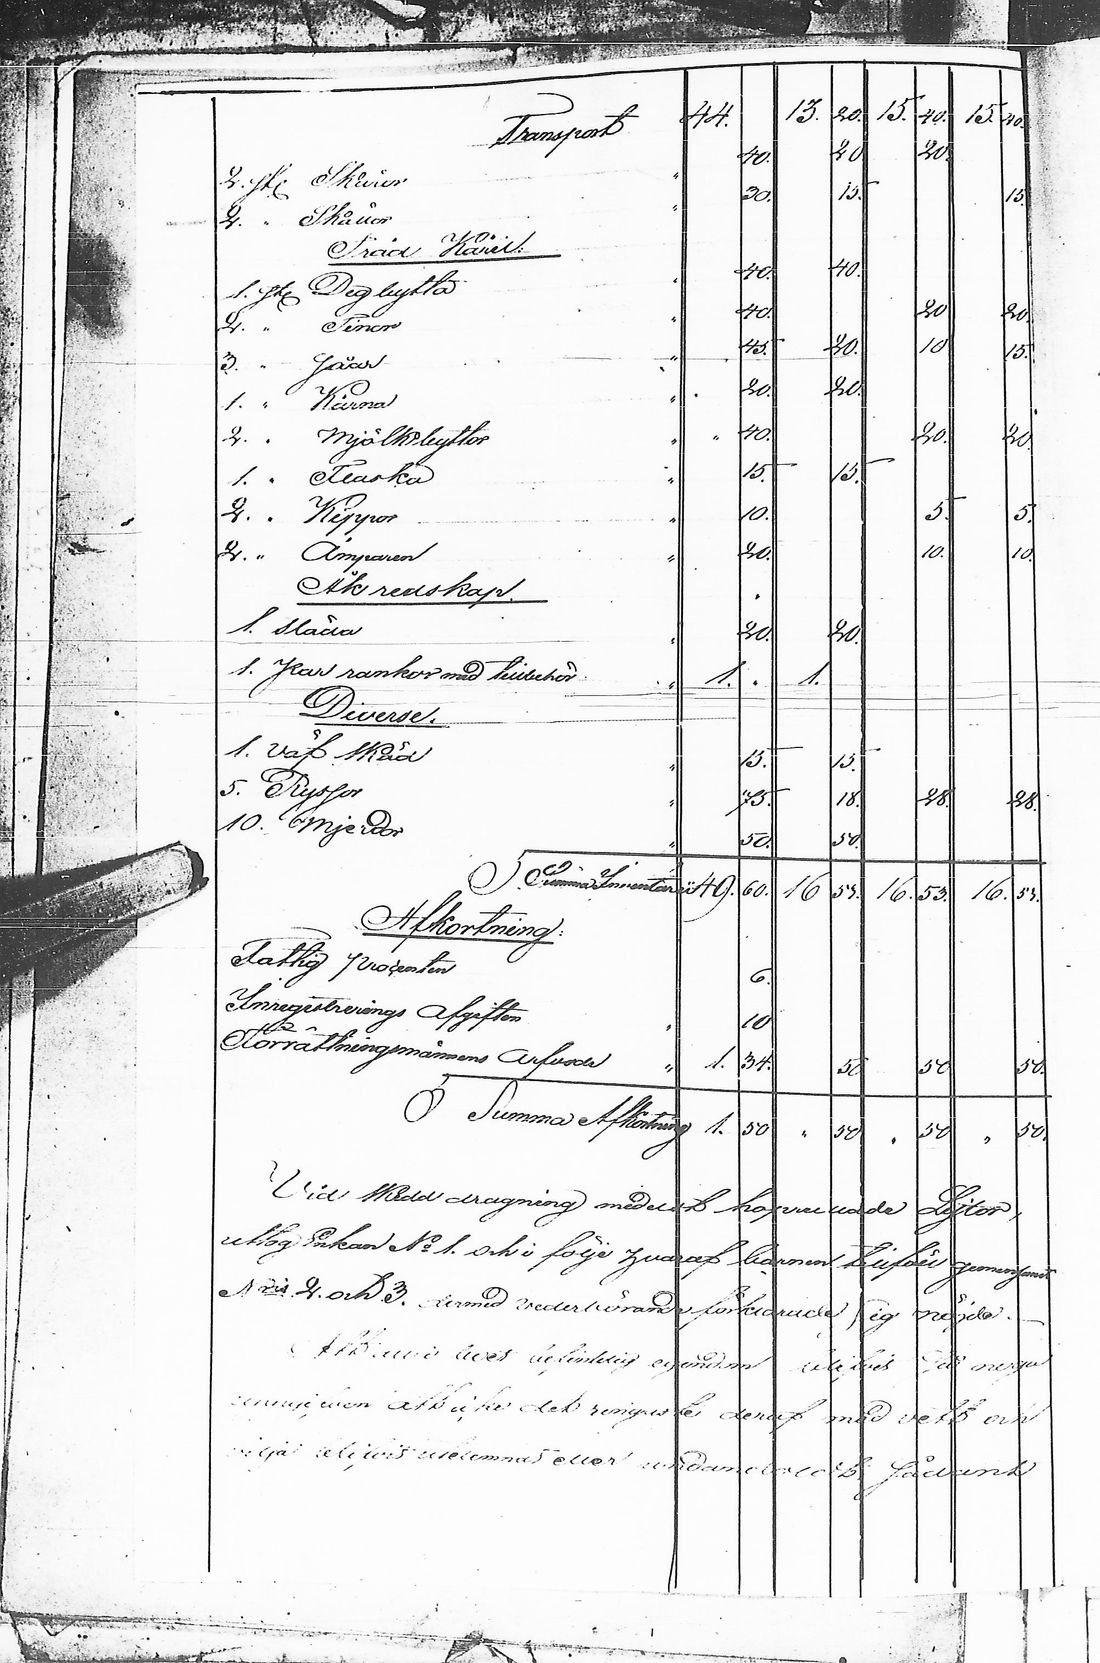 Transport 44. 13. 20. 15. 40. 15. 40.
2. st. Skäror " 40. 20 20.
2. " Skäror " 30. 15. 15.
Träd Käril:
1. st. Degbytta " 40. 40.
2. " Tinor " 40. 20 20.
3. " Såar " 45. 20. 10 15.
1. " Kärna " 20. 20.
2. " Mjölkbyttor " " 40. 20. 20.
1. " Flaska " 15. 15.
2. " Kippor " 10. 5. 5.
2. " Ämparen " 20. 10. 10.
Åk redskap.
1. Släda " 20. 20.
1. Par rankor med tillbehör " 1. . 1.
Diverse.
1. Väf skäd " 15. 15.
5. Ryssjor " 75. 18. 28. 28.
10. Mjerdor " 50. 50.
Summa Inventarii 49. 60. 16 53. 16. 53. 16. 53.
Afkortning:
Fattig procenten 6.
Inregistrerings Afgiften " 10
Förrättningsmännens Arfvode " 1. 34. 50 50 50.
Summa Afkortning 1. 50 " 50 " 50 " 50.
Vid skedd dragning medelst hoprullade Lijtor,
uttog Enkan No 1. och i följe hvaraf barnen tillföll gemensamt
N:ris 2. och 3. dermed vederbörande förklarade sig nöjde.
egendom
det ringaste deraf med vett och
vilja eller sådant